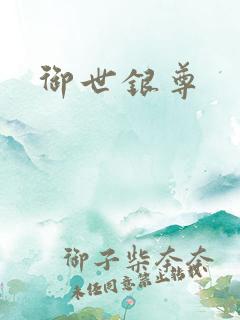 御世银尊
御子柴奈奈
未经同意禁止转载